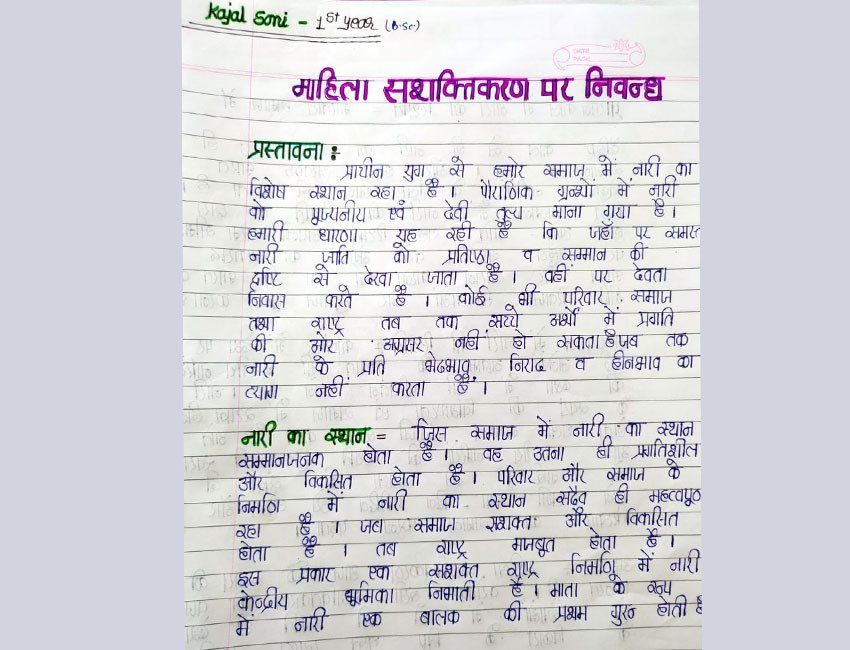 Kajal Soni - 1st year (B.Sc.)
माहिला सशक्तिकरण पर निवन्ध
प्रस्तावना :-
प्राचीन युग से हमारे समाज में नारी का
विशेष स्थान रहा है । पौराणिक ग्रन्थो में नारी
को पुज्यनीय एवं देवी तुल्य माना गया है ।
हमारी धारणा यह रही है कि जहाँ पर समस्त
नारी जाति को प्रतिष्ठा व सम्मान की
दृष्टि से देखा जाता है । वहीं पर देवता
निवास करते है । कोई भी परिवार समाज
तथा राष्ट्र तब तक सच्चे अर्थों में प्रगति
की ओर अग्रसर नहीं हो सकता है जब तक
नारी के प्रति भेदभाव, निरादर व हीनभाव का
त्याग नहीं करता है ।
नारी का स्थान = जिस समाज में नारी का स्थान
सम्मानजनक होता है । वह उतना ही प्रगतिशील
और विकसित होता है । परिवार और समाज के
निर्माण में नारी का स्थान सदैव ही महत्वपूण
रहा है । जब समाज सशक्त और विकसित
होता है । तब राष्ट्र मजबूत होता है ।
इस प्रकार एक सशक्त राष्ट्र निर्माण में नारी
केन्द्रीय भूमिका निभाती है । माता के रूप
में नारी एक बालक की प्रथम गुरू होती है